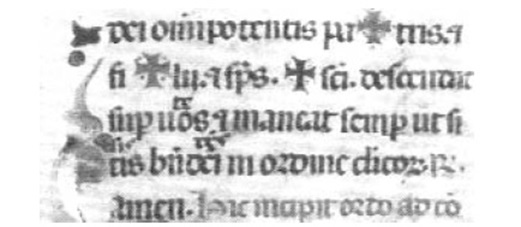 dei omnipotentis pa✠tris. ⁊
fi✠lij. ⁊ sp̄s. ✠ sc̄i. descendat
sup uos ⁊ maneat semp ut si
tis bn̄dc̄i in ordine clicoꝝ. ꝶ.
Amen. Hic incipit ordo ad cō